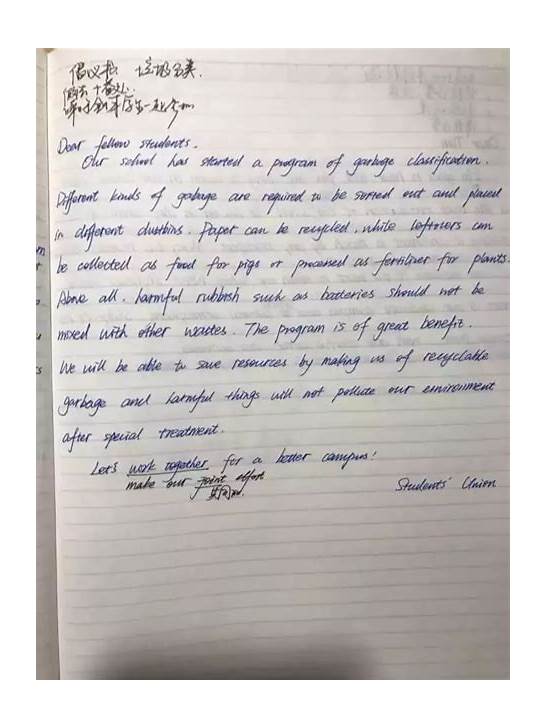 倡议书 垃圾分类.
Dear fellow students.
Our school has started a program of garbage classification.
Different kinds of gabage are required to be sorted out and placed
in different dustbins. Paper can be recycled, while leftovers can
be collected as food for pigs or processed as fertilizer for plants.
Above all, harmful rubbish such as batteries should not be
mixed with other wastes. The program is of great benefit.
We will be able to save resources by making us of recyclable
garbage and harmful things will not pollute our environment
after special treatment.
Let's work together for a better campus!
make our joint effort
共同的.
Students' Union